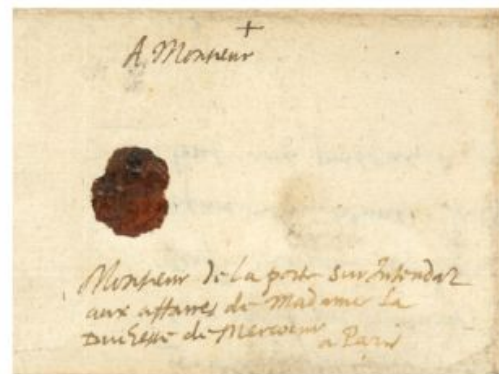 A Monsieur
Monsieur de la porte Surintendat
aux affaires de Madame La
Duchesse de Mercoeur
a Paris